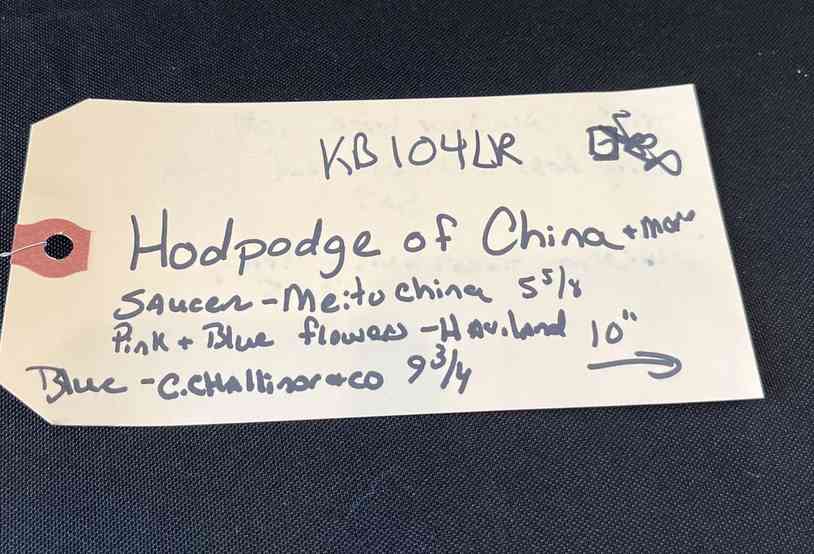 KB104LR
Hodpodge of China + more
Saucer - Meito China 5 5/8
Pink + Blue flowers - Haviland 10"
Blue - C.Challinor & co 9 3/4